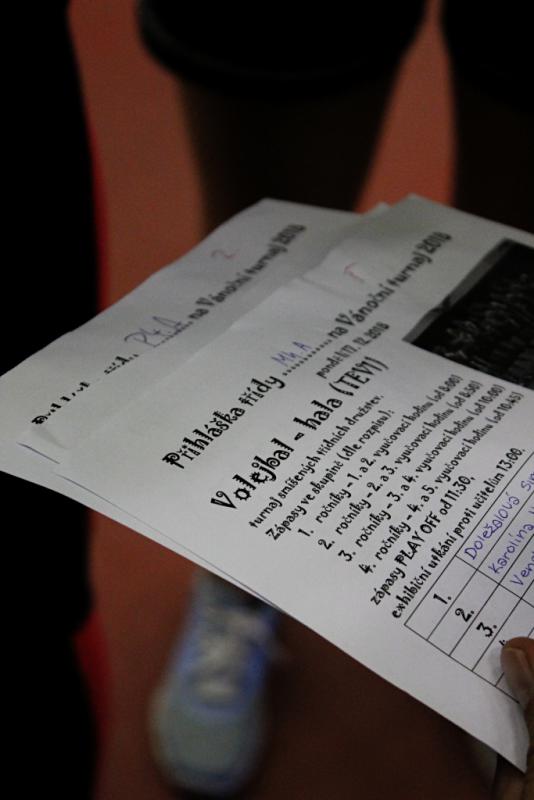 2
P4.A na Vánoční turnaj 2018
1
Přihláška třídy M4.A na Vánoční turnaj 2018
pondělí 17. 12. 2018
Volejbal – hala (TEV1)
turnaj smíšených třídních družstev.
Zápasy ve skupině (dle rozpisu):
1. ročníky – 1. a 2. vyučovací hodinu (od 8:00)
2. ročníky – 2. a 3. vyučovací hodinu (od 8:50)
3. ročníky – 3. a 4. vyučovací hodinu (od 10:00)
4. ročníky – 4. a 5. vyučovací hodinu (od 10:45)
zápasy PLAY OFF od 11:30.
exhibiční utkání proti učitelům 13:00.
1. Doležalová
2. Karolína
3.